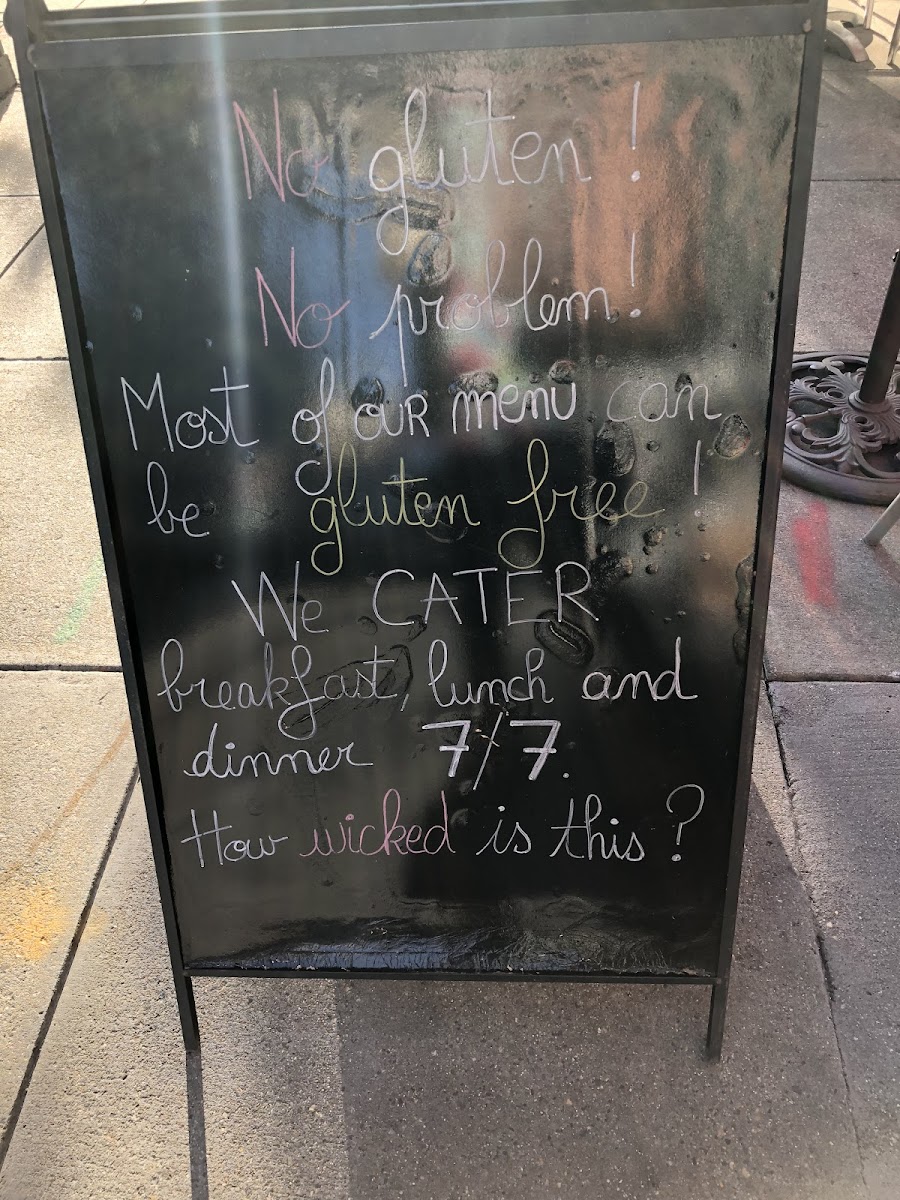 No gluten !
No problem!
Most of our menu can
be gluten free !
We CATER
breakfast, lunch and
dinner 7/7.
How wicked is this ?